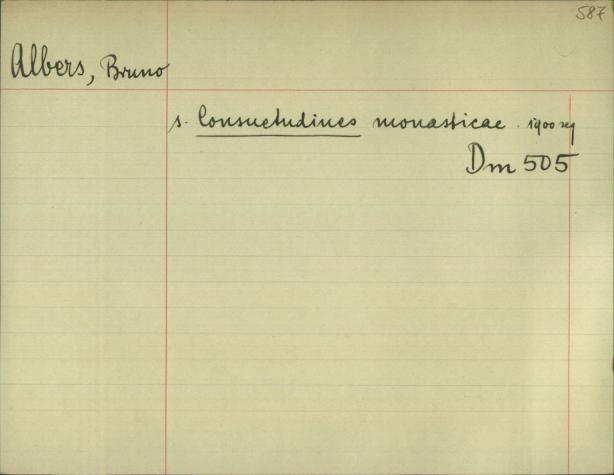 587
Albers, Bruno
s. Consuetudines monasticae. 1900 sq
Dm 505